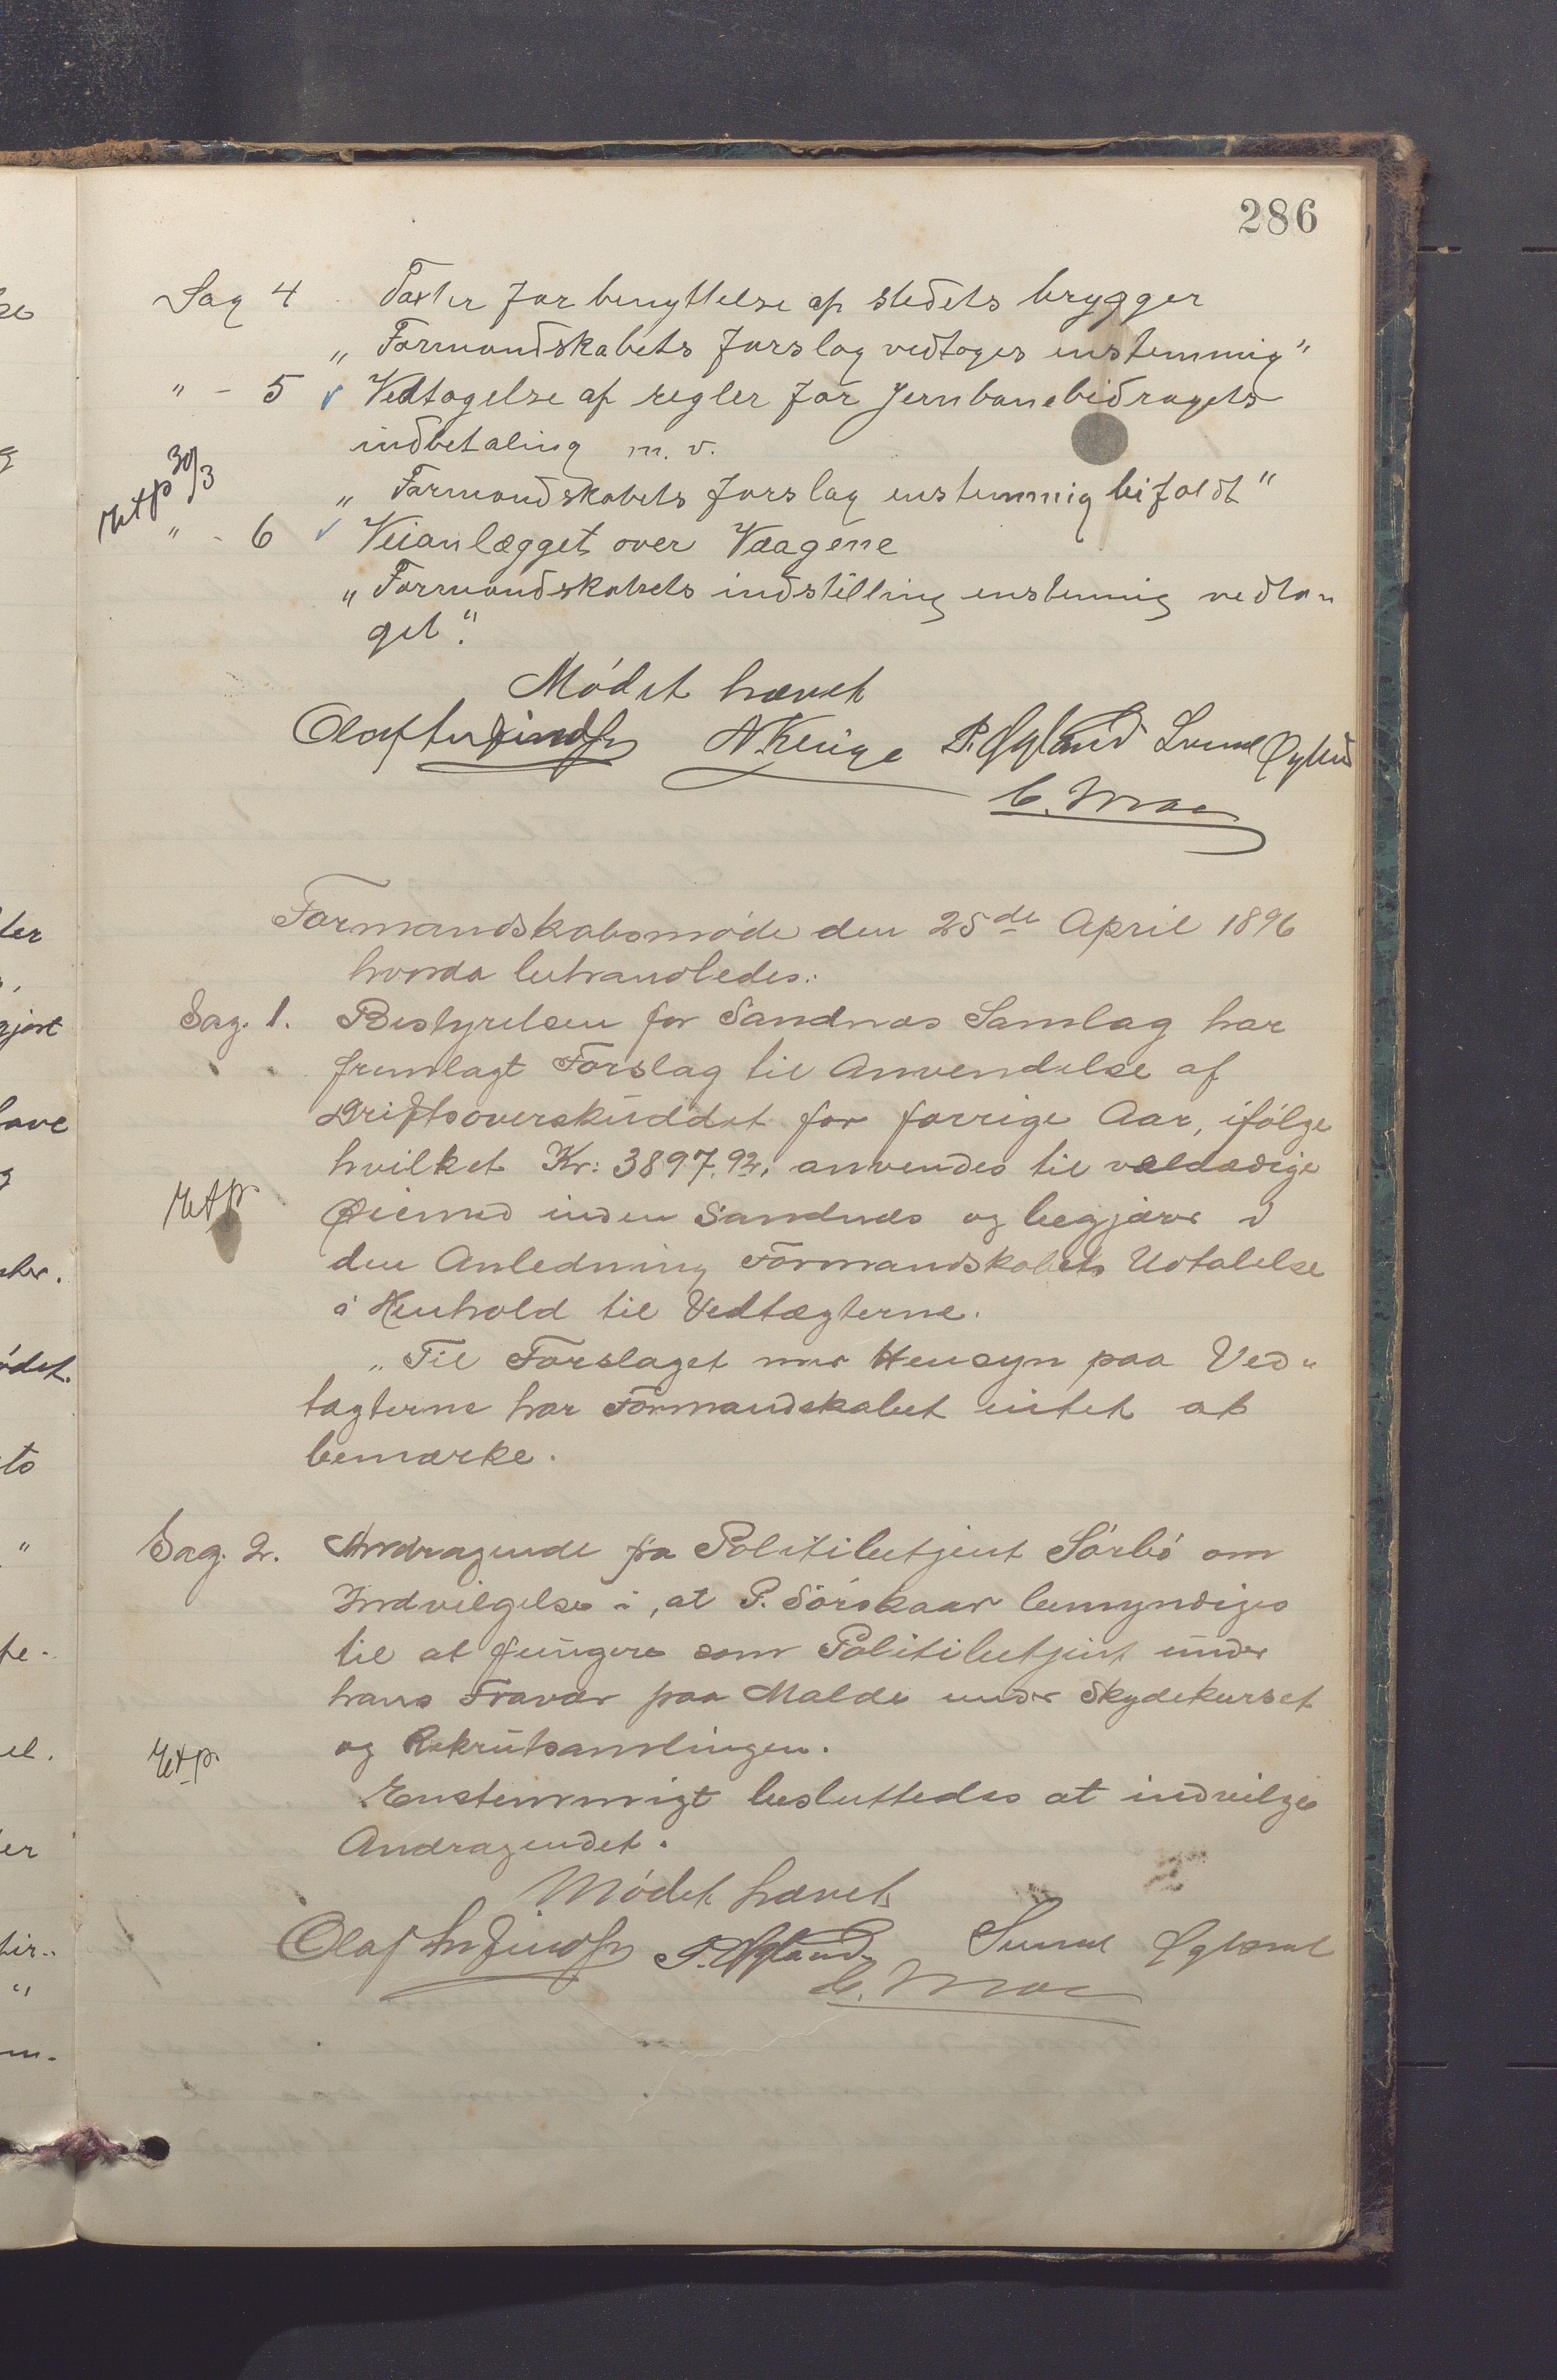 286
Sag 4 Taxter for benyttelse af stedets brygger
„ Formandskabets forslag vedtoges enstemmig"
" - 5 Vedtagelse af regler for Jernbanebidragets
indbetaling m. v.
Extp 30/3
„ Formandskabets forslag enstemmig bifaldt"
" - 6 Veianlægget over Vaagene
„ Formandskabets indstilling enstemmig vedta„
get".
Mödet hævet
A Kenige P. Aygland
C. Moe
Formandskabsmöde den 25de April 1896
hvorda behandledes:
Sag. 1. Bestyrelsen for Sandnæs Samlag har
fremlagt Forslag til Anvendelse af
Driftsoverskuddet for forrige Aar, ifölge
hvilket Kr: 3897.92, anvendes til veldædige
Extp
Øiemed inden Sandnæs og begjærer i
den Anledning Formandskabets Udtalelse
i Henhold til Vedtægterne.
„ Til Forslaget med Hensyn paa Ved„
tægterne har Formandskabet intet at
bemærke.
Sag. 2. Andragende fra Politibetjent Sörbö om
Indvilgelse i, at P. Sörskaar bemyndiges
til at fungere som Politibetjent under
hans Fravær paa Malde under Skydekurset
Extp.
og Rekrutsamlingen.
Enstemmigt besluttedes at indvilge
Andragendet.
Mödet hævet
Olaf P. Aygland
C. Moe